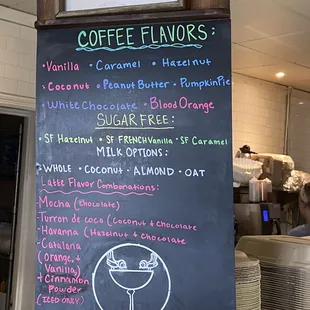 COFFEE FLAVORS:
• Vanilla • Caramel • Hazelnut
• Coconut • Peanut Butter • Pumpkin Pie
• White Chocolate • Blood Orange
SUGAR FREE:
• SF Hazelnut • SF FRENCH Vanilla • SF Caramel
MILK OPTIONS:
• WHOLE • COCONUT • ALMOND • OAT
Latte Flavor Combonations:
• Mocha (Chocolate)
• Turron de coco (Coconut + Chocolate
• Havanna (Hazelnut + Chocolate
• Catalana
(Orange, +
Vanilla)
+ Cinnamon
Powder
(ICED ONLY)